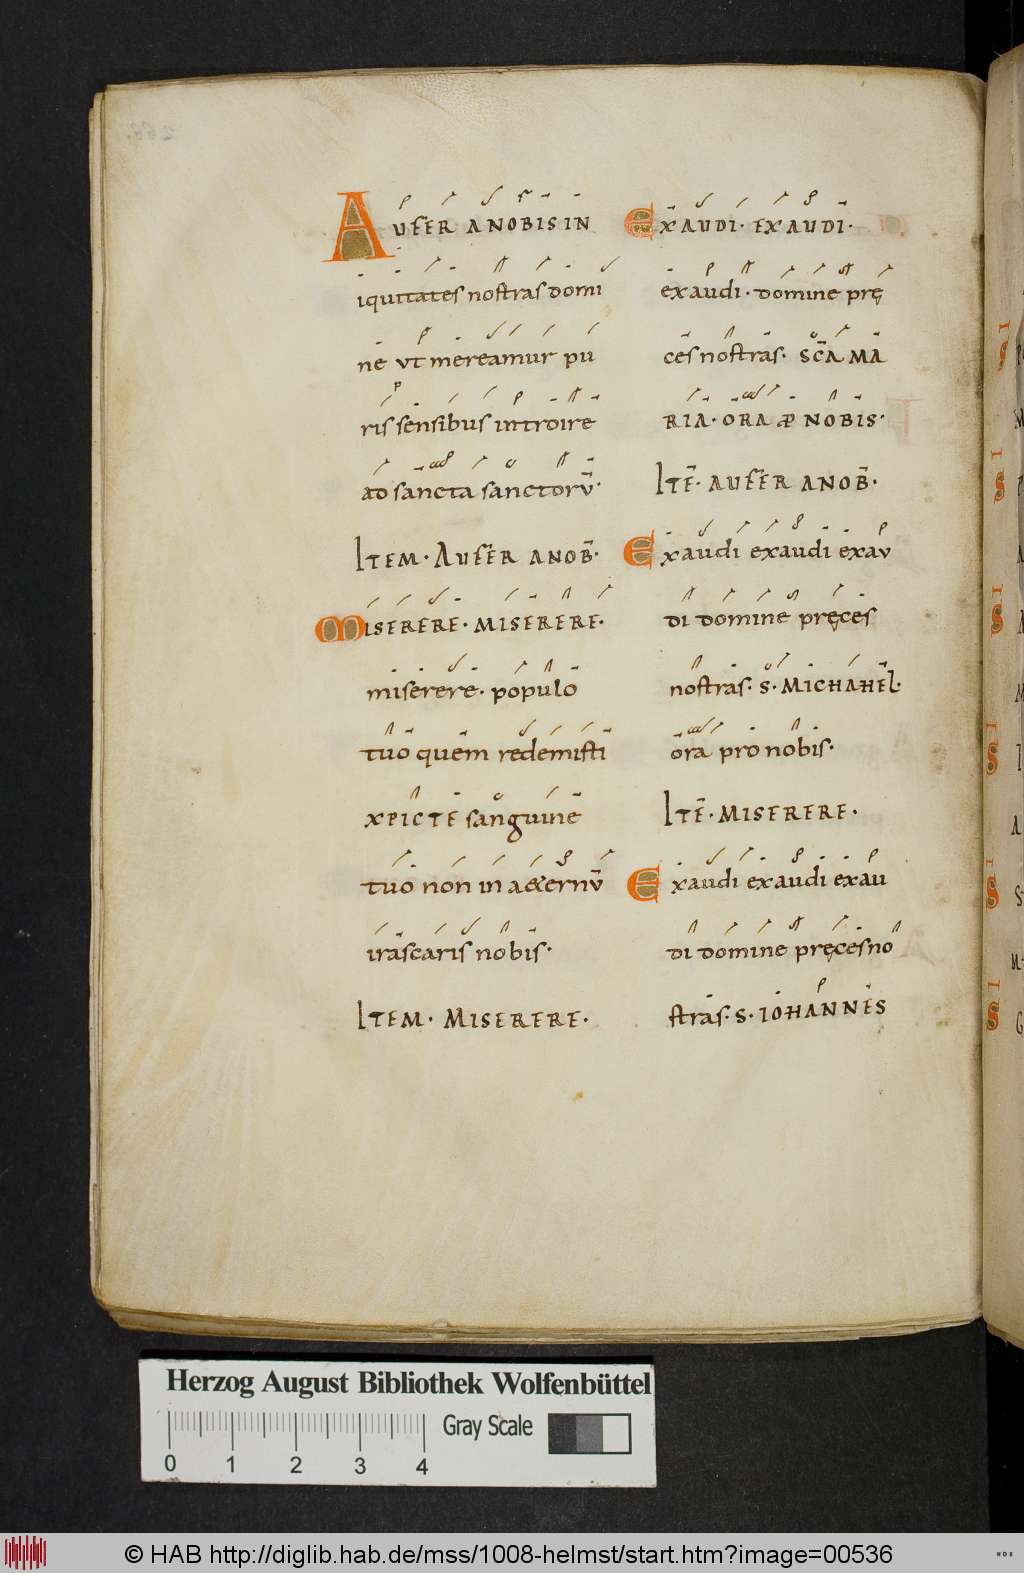 AUFER A NOBIS IN
iquitates nostras domi
ne ut mereamur pu
ris sensibus introire
ad sancta sanctorū·
ITEM· AUFER A NOB̄·
MISERERE· MISERERE·
miserere· populo
tuo quem redemisti
XPICTE sanguine
tuo non in aeternū
irascaris nobis·
ITEM· MISERERE·
EXAUDI· EXAUDI·
exaudi· domine prę
ces nostras· SC̄A MA
RIA· ORA P NOBIS·
ITĒ· AUFER A NOB̄·
Exaudi exaudi exau
di domine pręces
nostras· S· MICHAHEL·
ora pro nobis·
ITĒ· MISERERE·
Exaudi exaudi exau
di domine pręces no
stras· S· IOHANNES
Herzog August Bibliothek Wolfenbüttel
Gray Scale
0 1 2 3 4
© HAB http://diglib.hab.de/mss/1008-helmst/start.htm?image=00536